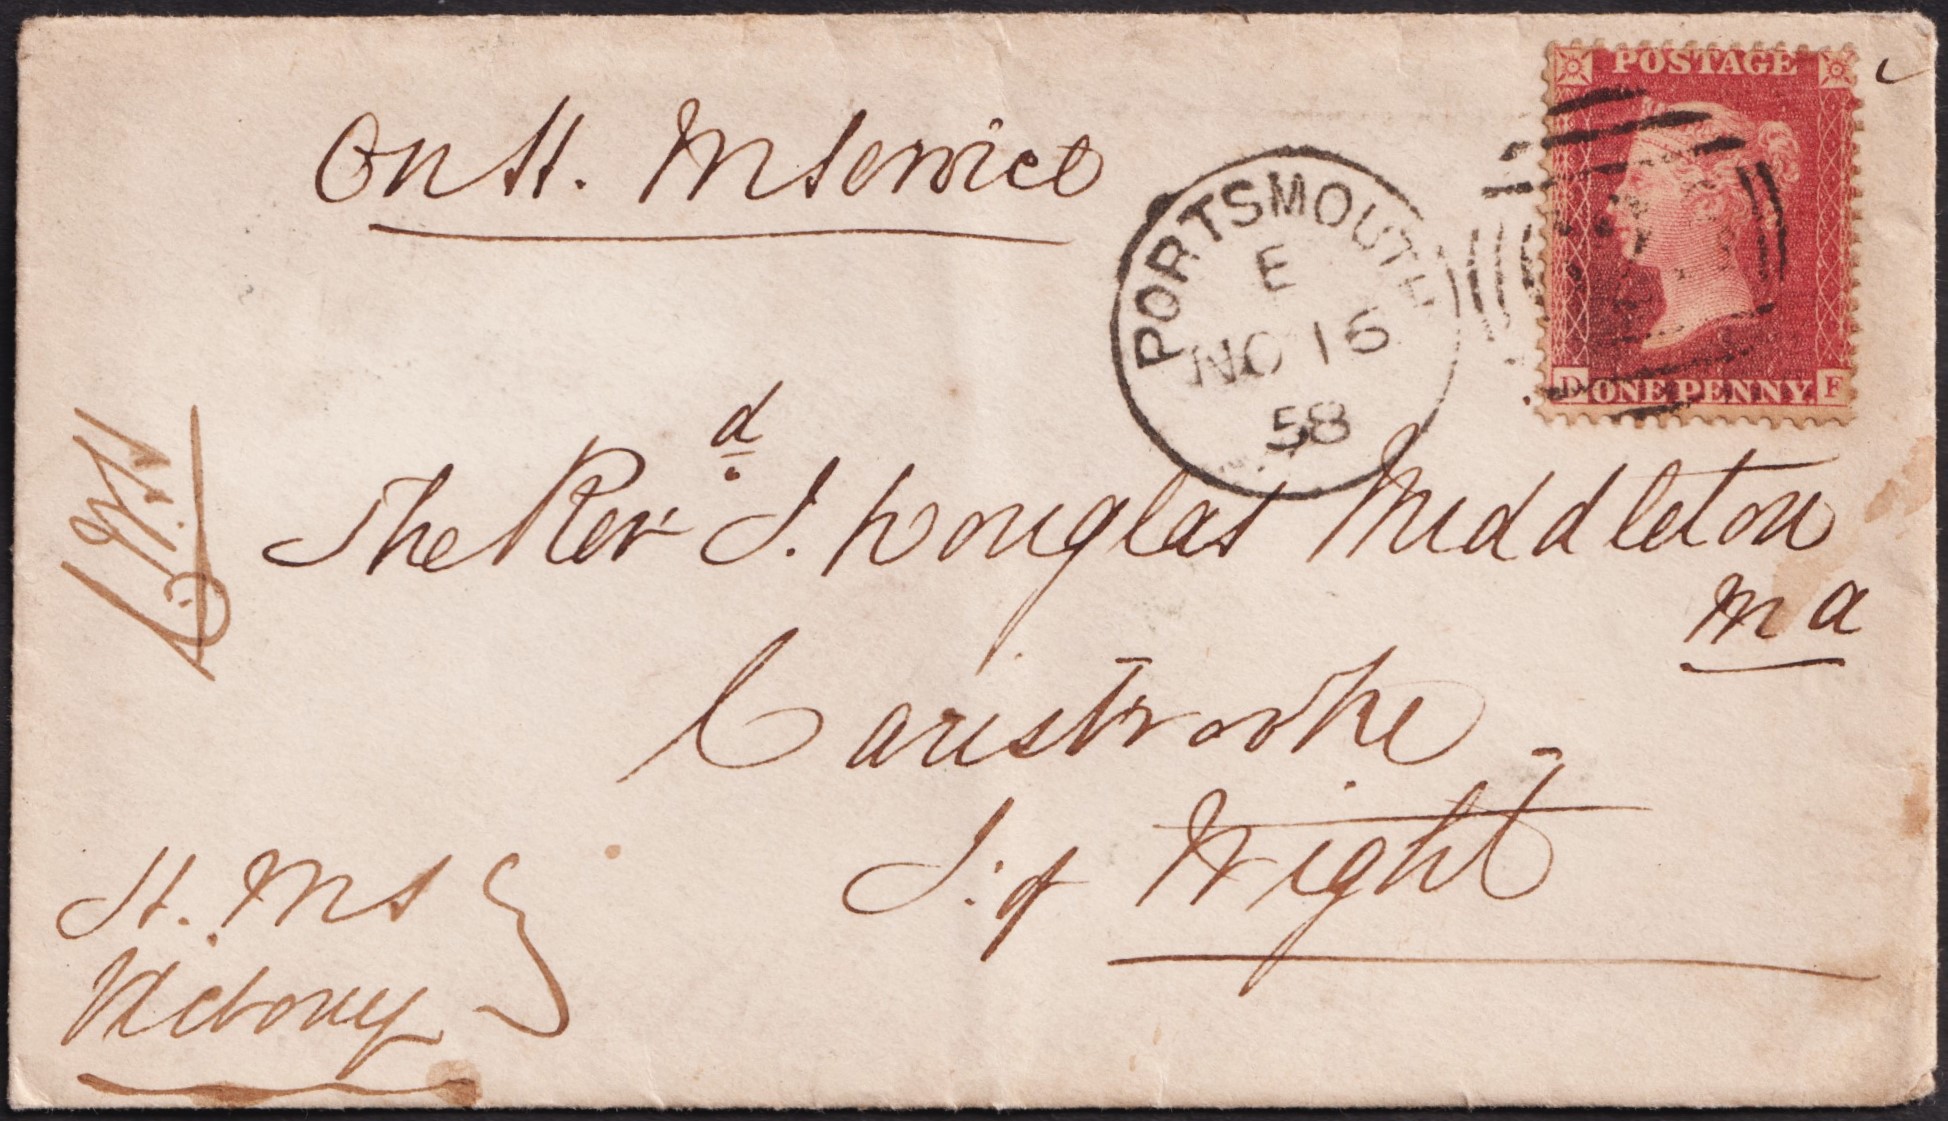 On H. M Service
POSTAGE
D ONE PENNY F
PORTSMOUTH
E
NO 16
58
The Revd. J. Douglas Middleton
M A
Carisbrooke
I: of Wight
H. M S
Victory